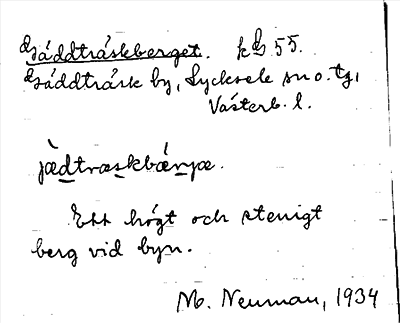 Gäddträskberget. kbl 55.
Gäddträsk by, Lycksele sn o. tg,
Västerb. l.
jædtræskbærjæ.
Ett högt och stenigt
berg vid byn.
M. Neuman, 1934